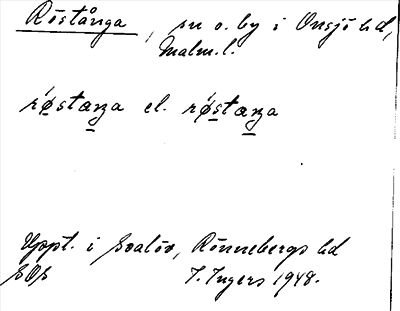 Röstånga, sn o. by i Onsjö hd,
Malm. l.
røstaŋa el. røstaŋa
Uppt. i Svalöv, Rönnebergs hd
SOS I. Ingers 1948.